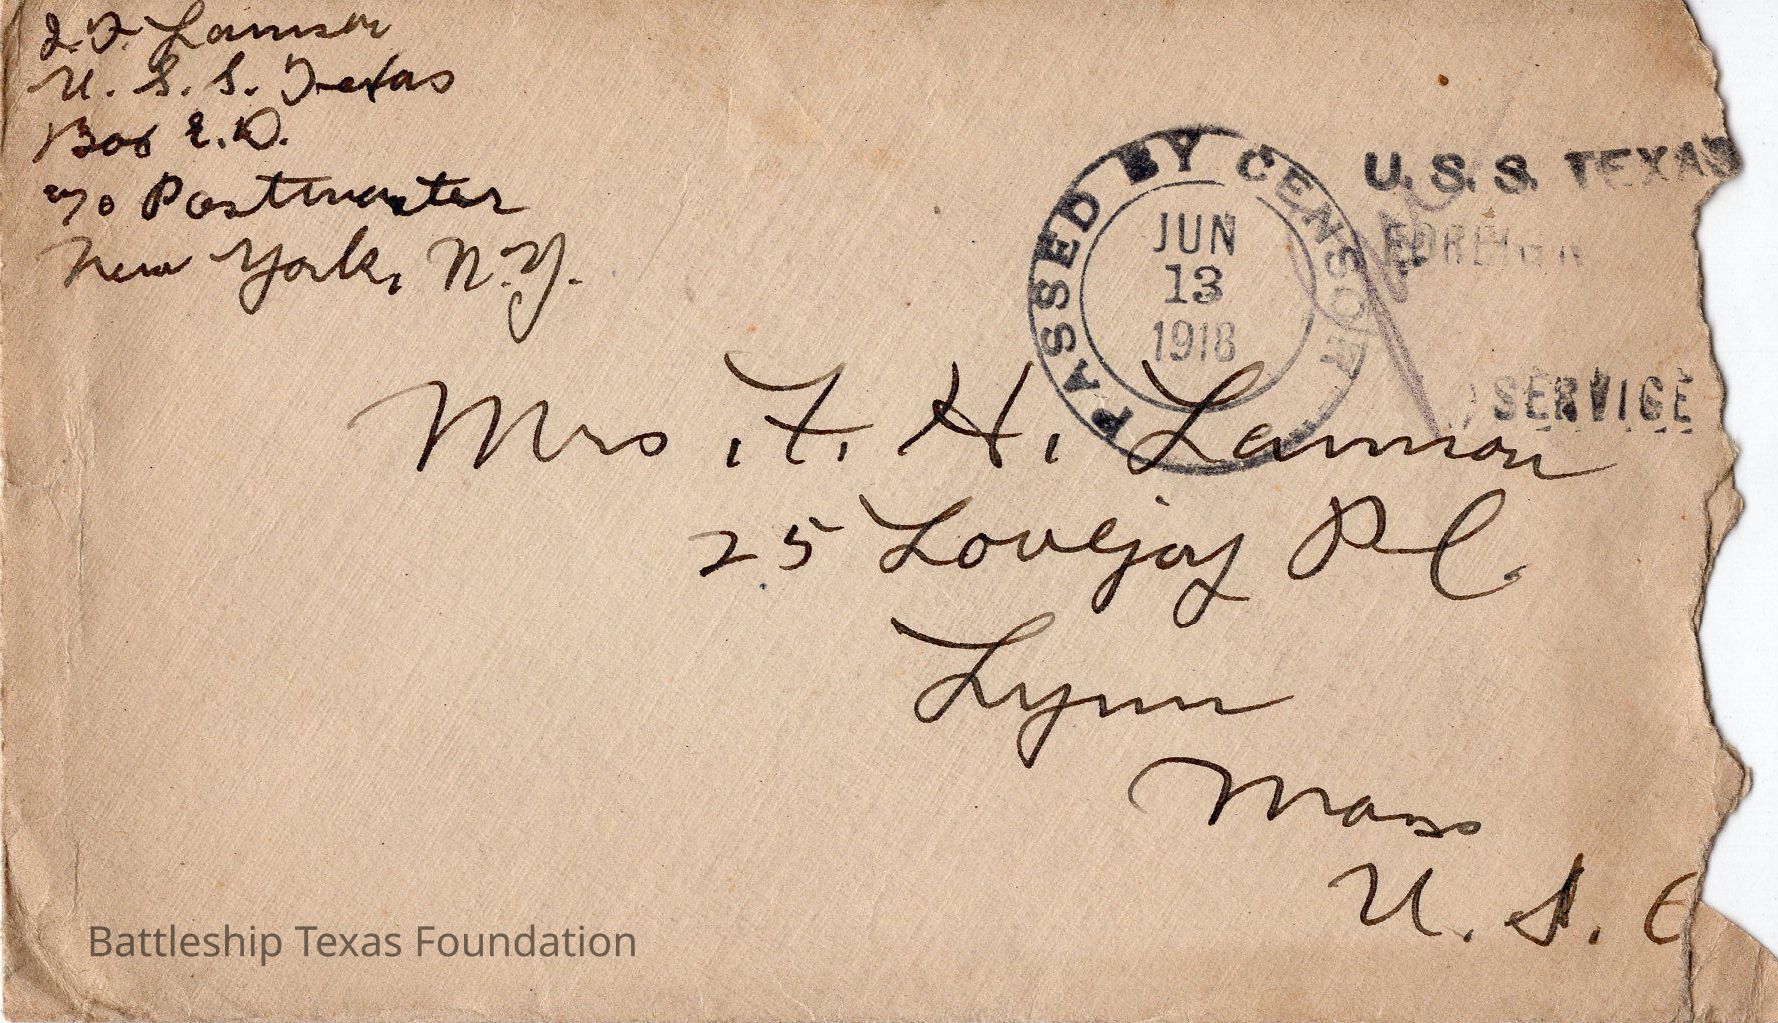 U. S. S. Texas
Box E.D.
c/o Postmaster
New York, N.Y.
PASSED BY CENSOR
JUN
13
1918
U.S.S. TEXAS
FOREIGN
SERVICE
Mrs. F. H. Lamson
25 Lovejoy Pl.
Lynn
Mass
U. S.
Battleship Texas Foundation